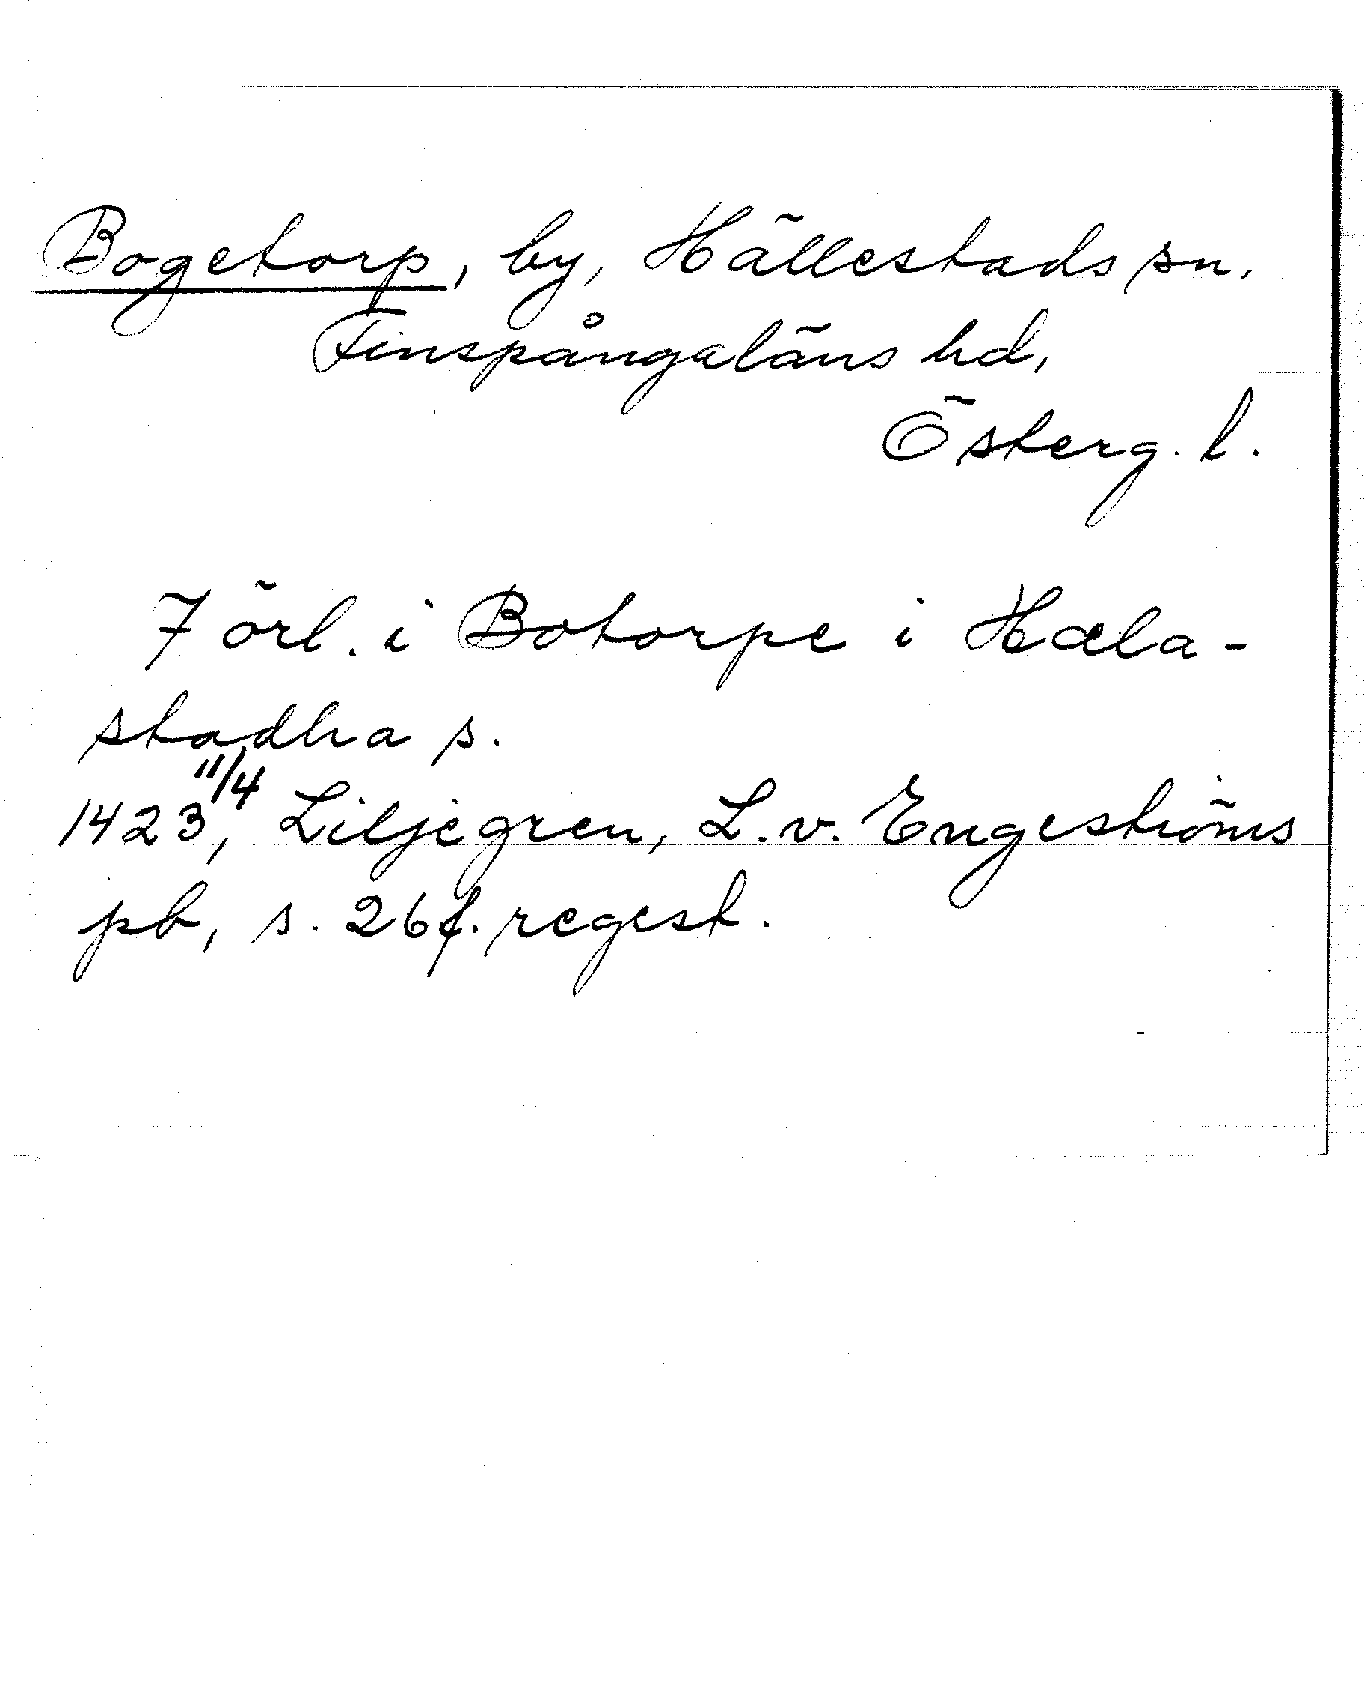 Bogetorp, by, Hällestads sn.
Finspångaläns hd,
Österg. l.
Förl. i Botorpe i Hæla-
stadha s.
1423 11/4, Liljegren, L. v. Engeströms
pb, s. 26f. regest.